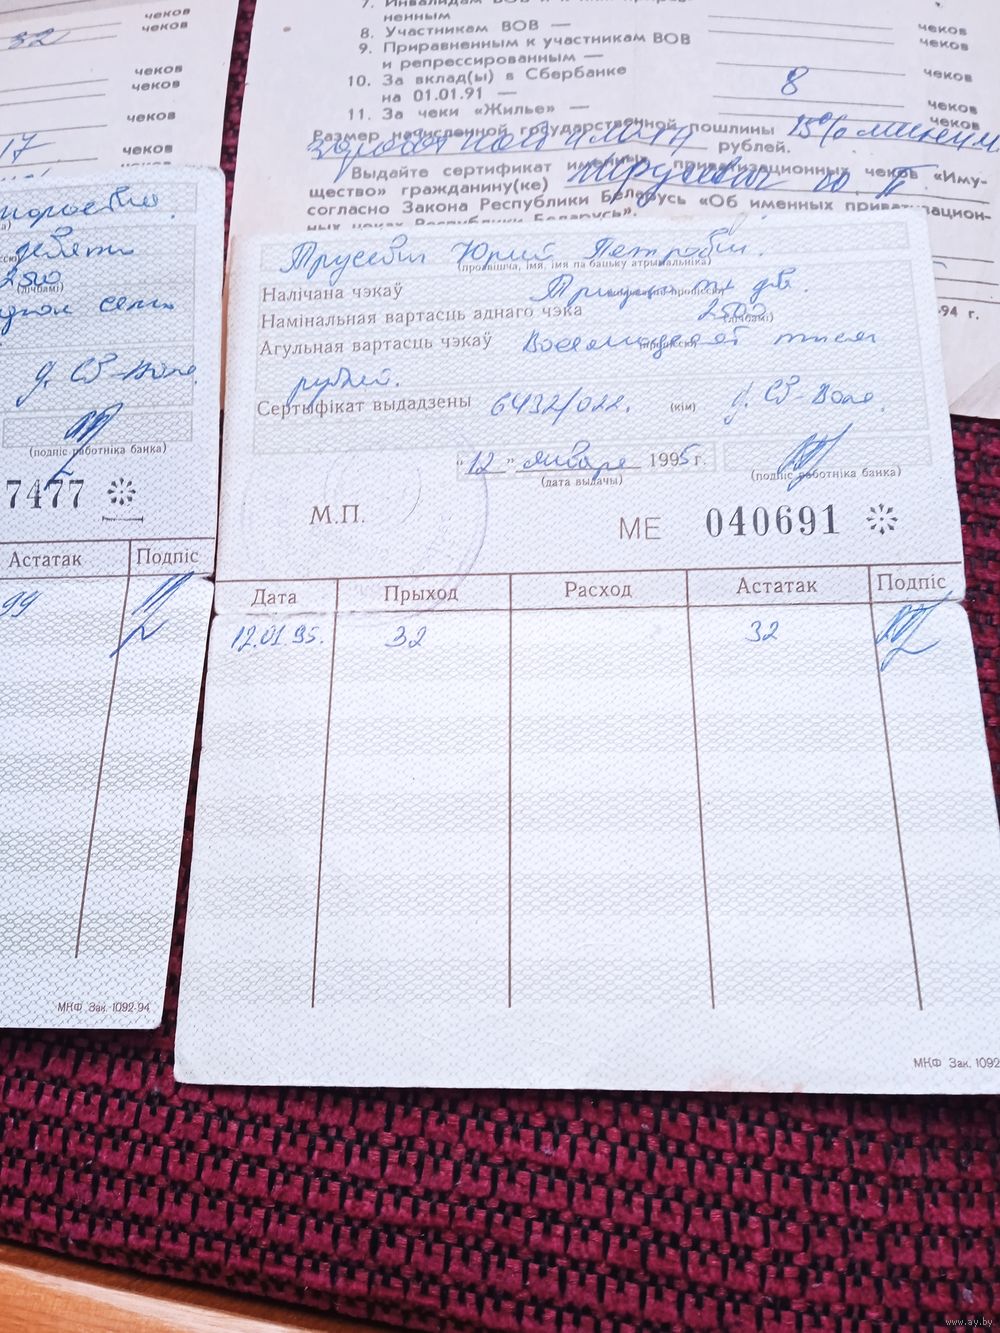 чеков
чеков
32
чеков
чеков
чеков
17
чеков
чеков
7. Инвалидам ВОВ
ненным
8. Участникам ВОВ — чеков
9. Приравненным к участникам ВОВ чеков
и репрессированным —
10. За вклад(ы) в Сбербанке
на 01.01.91 — 8 чеков
11. За чеки «Жилье» — чеков
чеков
Размер начисленной государственной пошлины 15% миним
заработной платы рублей.
Выдайте сертификат именных приватизационных чеков «Иму-
щество» гражданину(ке) Трусевич Ю П
согласно Закона Республики Беларусь «Об именных приватизацион-
ных чеках Республики Беларусь».
94 г.
девяти
2500
(лічбамі)
д. Св-Воля
(подпіс работніка банка)
7477
Астатак Подпіс
99
МНФ Зак. 1092-94
Трусевич Юрий Петрович.
(прозвішча, імя, імя па бацьку атрымальніка)
Налічана чэкаў Тридцать два.
Намінальная вартасць аднаго чэка 2500
(лічбамі)
Агульная вартасць чэкаў Восемьдесят тысяч
рублей.
Сертыфікат выдадзены 6432/022. (кім) д. Св-Воля.
"12" января 1995 г.
(дата выдачы) (подпіс работніка банка)
М.П. МЕ 040691
Дата Прыход Расход Астатак Подпіс
12.01.95. 32 32
МНФ Зак. 1092
www.ay.by